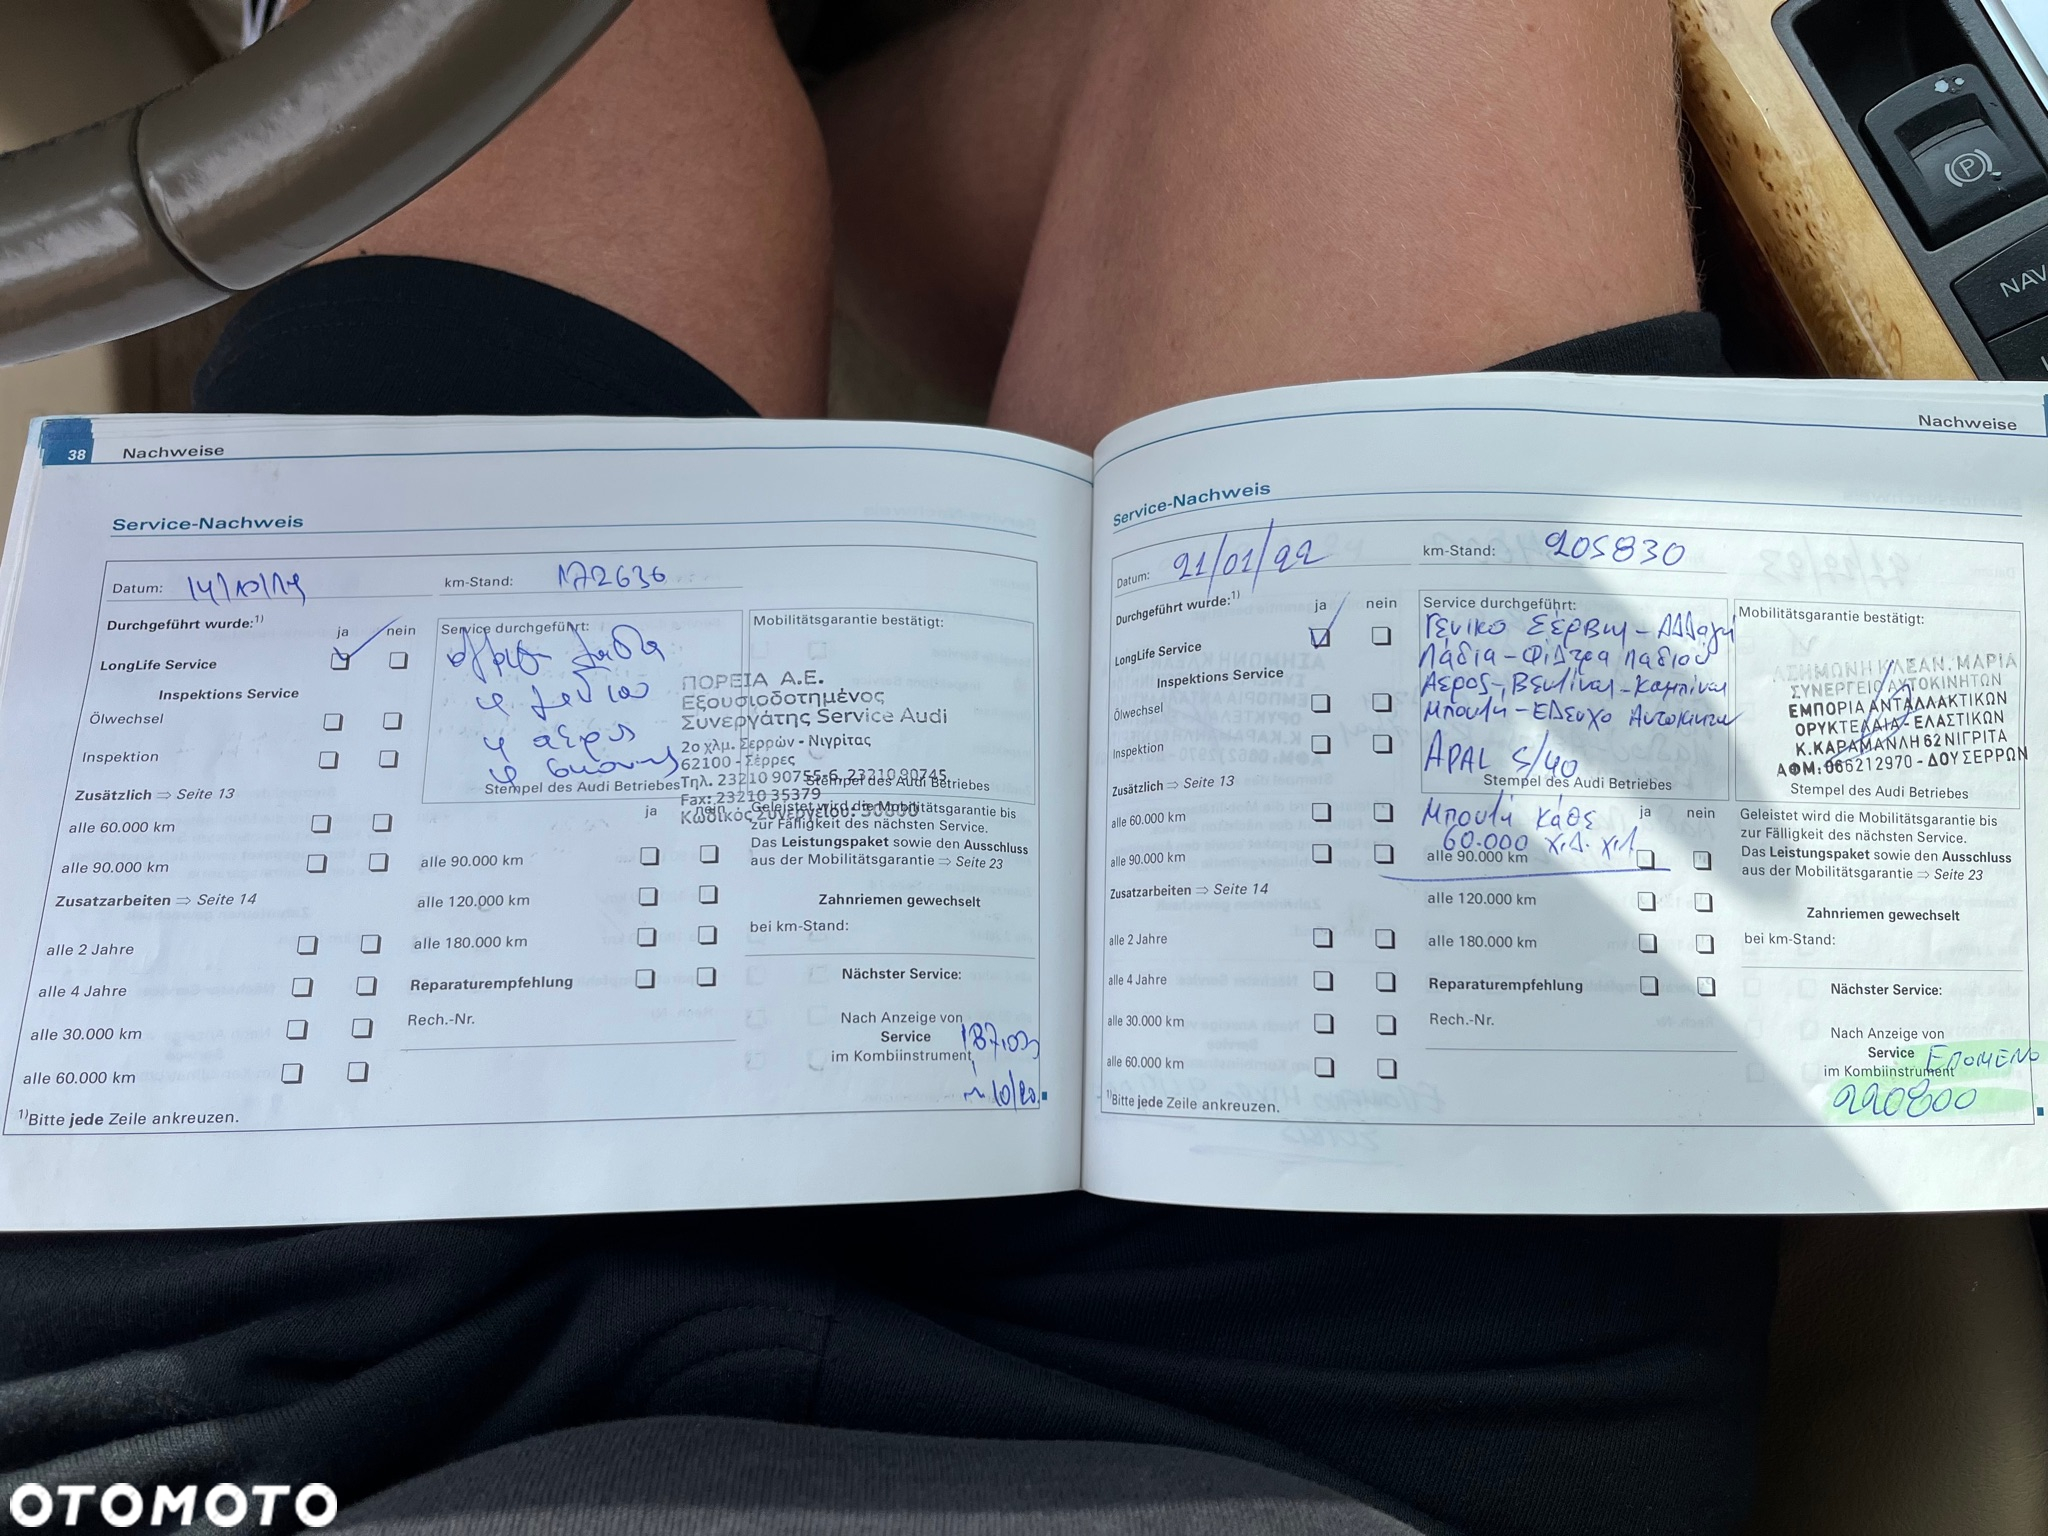 NAV
38 Nachweise
Service-Nachweis
Datum: 14/10/19 km-Stand: 172636
Durchgeführt wurde:¹⁾ ja nein
LongLife Service
Inspektions Service
Ölwechsel
Inspektion
Zusätzlich ⇒ Seite 13
alle 60.000 km
alle 90.000 km
Zusatzarbeiten ⇒ Seite 14
alle 2 Jahre
alle 4 Jahre
alle 30.000 km
alle 60.000 km
¹⁾Bitte jede Zeile ankreuzen.
Service durchgeführt:
λάδια
φ
φ αέρος
φ
Stempel des Audi Betriebes
ja nein
alle 90.000 km
alle 120.000 km
alle 180.000 km
Reparaturempfehlung
Rech.-Nr.
Mobilitätsgarantie bestätigt:
ΠΟΡΕΙΑ Α.Ε.
Εξουσιοδοτημένος
Συνεργάτης Service Audi
2ο χλμ. Σερρών - Νιγρίτας
62100 - Σέρρες
Τηλ. 23210 90755-6, 23210 90745
Fax: 23210 35379
Κωδικός Συνεργείου: 30800
Stempel des Audi Betriebes
Geleistet wird die Mobilitätsgarantie bis
zur Fälligkeit des nächsten Service.
Das Leistungspaket sowie den Ausschluss
aus der Mobilitätsgarantie ⇒ Seite 23
Zahnriemen gewechselt
bei km-Stand:
Nächster Service:
Nach Anzeige von
Service
im Kombiinstrument
ή 10/20.
Nachweise
Service-Nachweis
Datum: 21/01/22 km-Stand: 205830
Durchgeführt wurde:¹⁾ ja nein
LongLife Service
Inspektions Service
Ölwechsel
Inspektion
Zusätzlich ⇒ Seite 13
alle 60.000 km
alle 90.000 km
Zusatzarbeiten ⇒ Seite 14
alle 2 Jahre
alle 4 Jahre
alle 30.000 km
alle 60.000 km
¹⁾Bitte jede Zeile ankreuzen.
Service durchgeführt:
Γενικο Σέρβις - Αλλαγή
Λάδια - Φίλτρα λαδιού
Αερος - Βενζίναι - Καμπίναι
Μπουζι - Ελενχο Αυτοκινητου
APAL 5/40
Stempel des Audi Betriebes
Μπουζι κάθε
60.000 χιλ. χιλ
ja nein
alle 90.000 km
alle 120.000 km
alle 180.000 km
Reparaturempfehlung
Rech.-Nr.
Mobilitätsgarantie bestätigt:
ΑΣΗΜΩΝΗ ΚΛΕΑΝ. ΜΑΡΙΑ
ΣΥΝΕΡΓΕΙΟ ΑΥΤΟΚΙΝΗΤΩΝ
ΕΜΠΟΡΙΑ ΑΝΤΑΛΛΑΚΤΙΚΩΝ
ΟΡΥΚΤΕΛΑΙΑ - ΕΛΑΣΤΙΚΩΝ
Κ.ΚΑΡΑΜΑΝΛΗ 62 ΝΙΓΡΙΤΑ
ΑΦΜ: 066212970 - ΔΟΥ ΣΕΡΡΩΝ
Stempel des Audi Betriebes
Geleistet wird die Mobilitätsgarantie bis
zur Fälligkeit des nächsten Service.
Das Leistungspaket sowie den Ausschluss
aus der Mobilitätsgarantie ⇒ Seite 23
Zahnriemen gewechselt
bei km-Stand:
Nächster Service:
Nach Anzeige von
Service
im Kombiinstrument
ΕΠΟΜΕΝΟ
220800
OTOMOTO